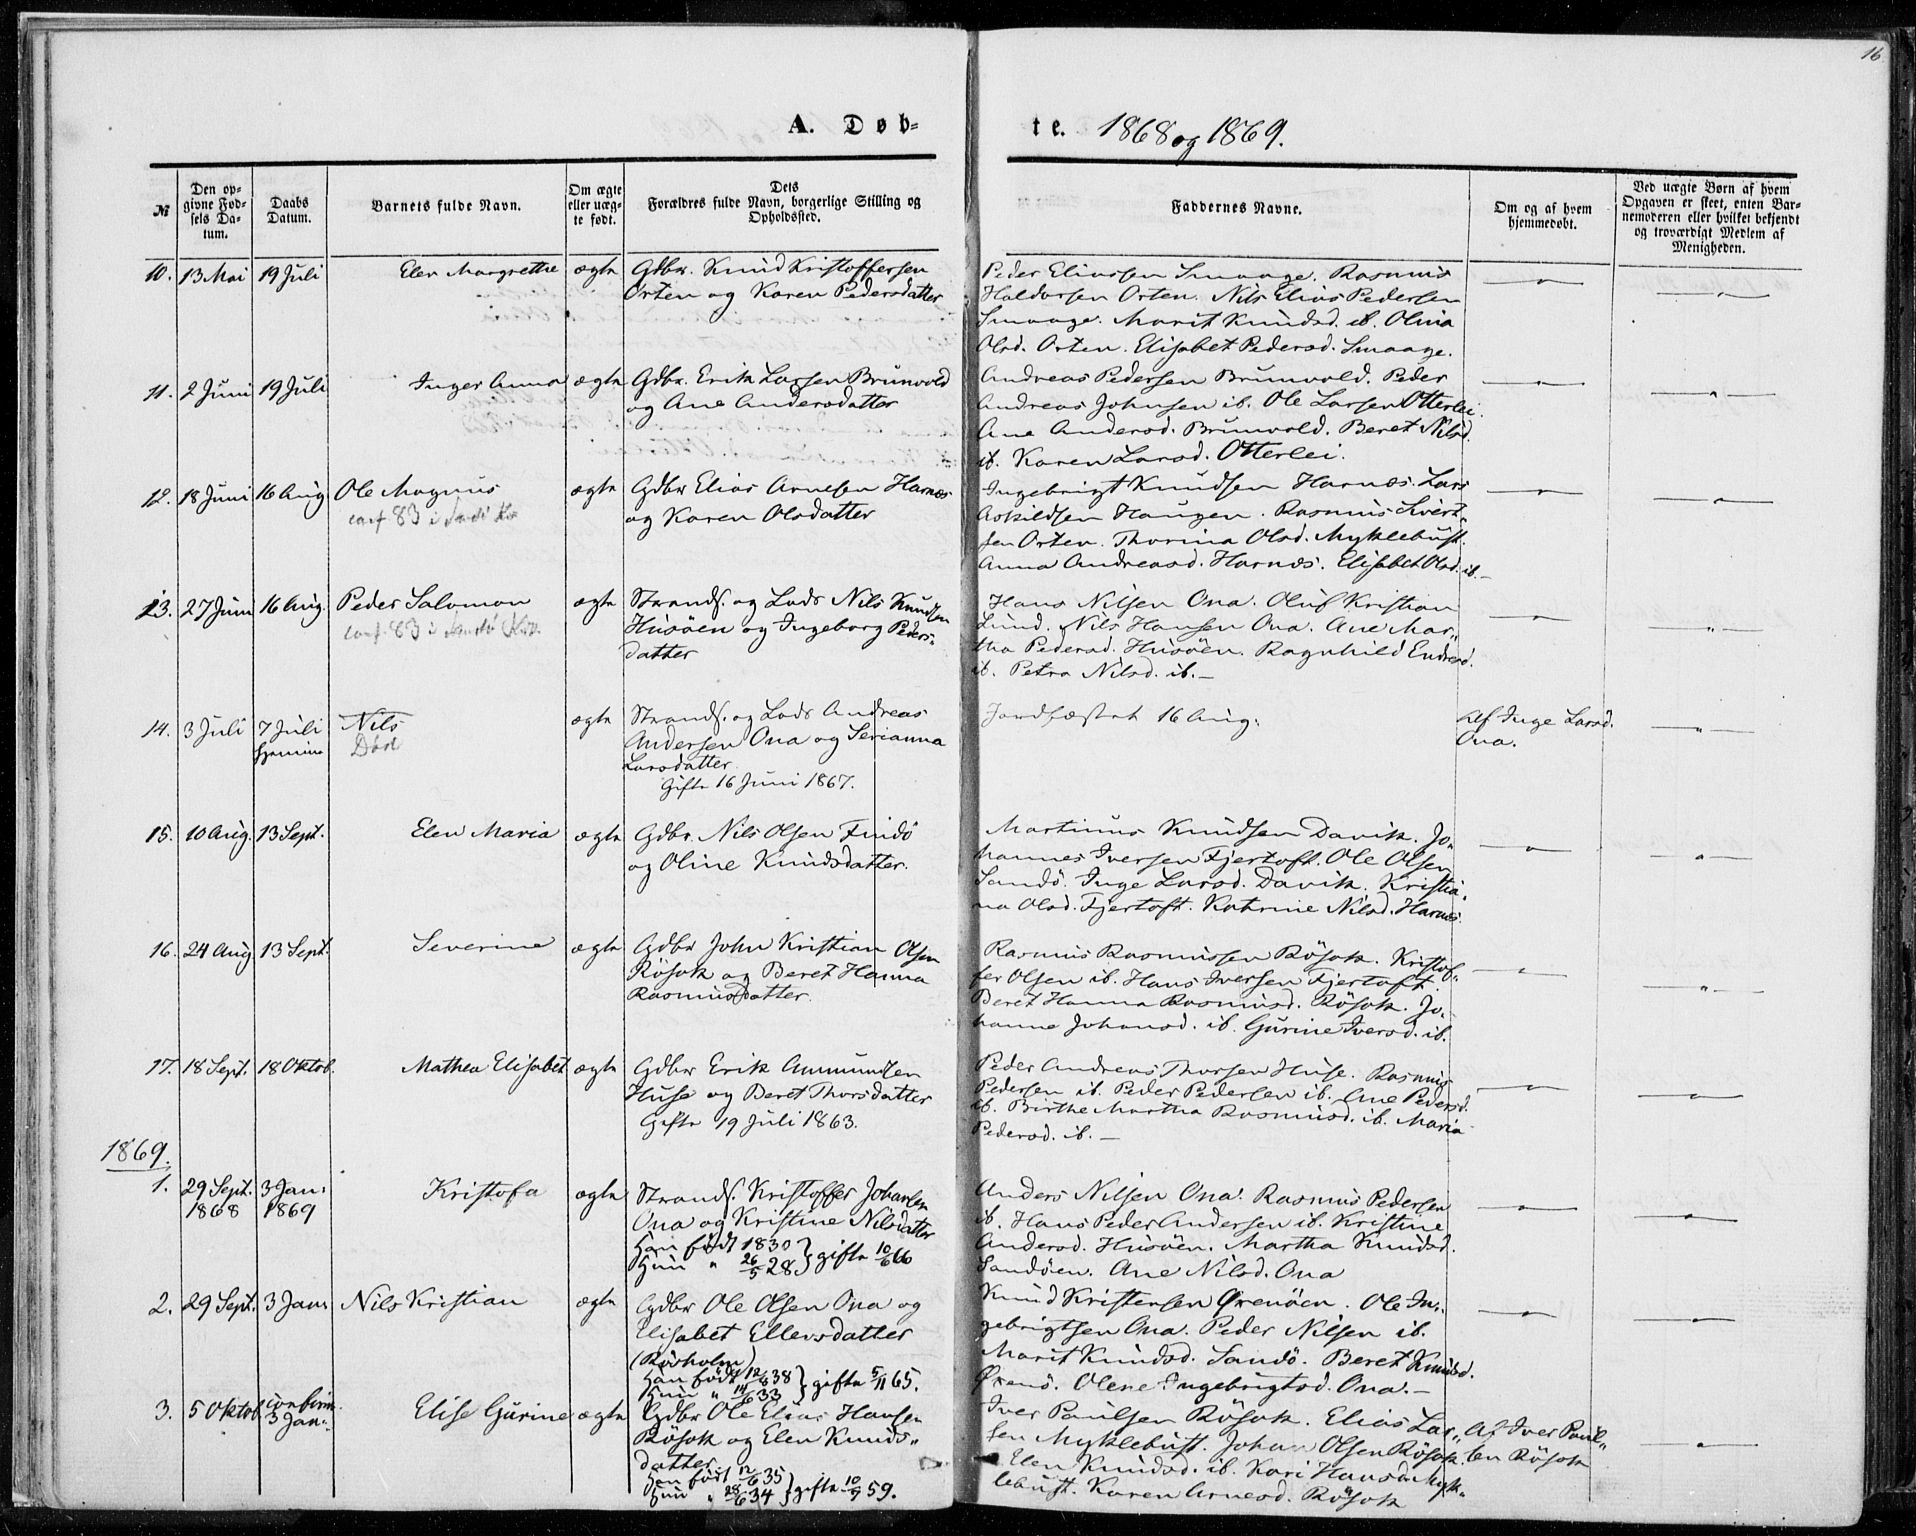 16
A. Døb-
te. 1868 og 1869.
№
Den op-
givne Fød-
sels Da-
tum.
Daabs
Datum.
Barnets fulde Navn.
Om ægte
eller uæg-
te født.
Dets
Forældres fulde Navn, borgerlige Stilling og
Opholdssted.
Faddernes Navne.
Om og af hvem
hjemmedøbt.
Ved uægte Børn af hvem
Opgaven er skeet, enten Bar-
nemoderen eller hvilket bekjendt
og troværdigt Medlem af
Menigheden.
10. 13 Mai 19 Juli Elen Margrethe ægte
Gdbr. Knud Kristoffersen
Orten og Karen Pedersdatter
Peder Eliassen Smaage. Rasmus
Haldorsen Orten. Nils Elias Pedersen
Smaage. Marit Knudsd. ib. Olina
Olsd. Orten. Elisabet Pedersd. Smaage.
11. 2 Juni 19 Juli Inger Anna ægte
Gdbr. Erik Larsen Brunvold
og Ane Andersdatter
Andreas Pedersen Brunvold. Peder
Andreas Johnsen ib. Ole Larsen Otterlei.
Ane Andersd. Brunvold. Beret Nilsd.
ib. Karen Larsd. Otterlei.
12. 18 Juni 16 Aug. Ole Magnus ægte
conf. 83 i Sandø K.
Gdbr Elias Arnesen Harnæs
og Karen Olsdatter
Ingebrigt Knudsen Harnæs. Lars
Askildsen Haugen. Rasmus Sivert-
sen Orten. Thorina Olsd. Myklebust.
Anna Andreasd. Harnæs. Elisabet Olsd. ib.
13. 27 Juni 16 Aug. Peder Salomon ægte
conf. 83 i Sandø K.
Strands. og Lods Nils Knudsen
Husöen og Ingeborg Peders-
datter
Hans Nilsen Ona. Oluf Kristian
Lund. Nils Hansen Ona. Ane Mar-
tha Pedersd. Husöen. Ragnhild Endresd.
ib. Petra Nilsd. ib.
14. 3 Juli 7 Juli Nils ægte
hjemme Död
Strands. og Lods Andreas
Andersen Ona og Serianna
Larsdatter
Gifte 16 Juni 1867.
Jordfæstet 16 Aug.
Af Inge Larsd.
Ona.
15. 10 Aug. 13 Sept. Elen Maria ægte
Gdbr. Nils Olsen Findö
og Oline Knudsdatter.
Martinus Knudsen Davik. Jo-
hannes Iversen Fjertoft. Ole Olsen
Sandö. Inge Larsd. Davik. Kristia-
na Olsd. Fjertoft. Katrine Nilsd. Harnæs.
16. 24 Aug 13 Sept. Severine ægte
Gdbr John Kristian Olsen
Rösok og Beret Hanna
Rasmusdatter.
Rasmus Rasmussen Rösok. Kristof-
fer Olsen ib. Hans Iversen Fjertoft.
Beret Hanna Rasmusd. Rösok. Jo-
hanne Johansd. ib. Gurine Iversd. ib.
17. 18 Sept. 18 Oktob. Mathea Elisabet ægte
Gdbr Erik Ammundsen
Huse og Beret Thorsdatter
Gifte 19 Juli 1863.
Peder Andreas Thorsen Huse. Rasmus
Pedersen ib. Peder Pedersen ib. Ane Pedersd.
ib. Birthe Martha Rasmusd. ib. Maria
Pedersd. ib.
1869.
1. 29 Sept. 3 Jan: Kristofa ægte
1868 1869
Strands. Kristoffer Johansen
Ona og Kristine Nilsdatter
Han födt 1830
Hun " 26/5 28 } gifte 10/6 66
Anders Nilsen Ona. Rasmus Pedersen
ib. Hans Peder Andersen ib. Kristine
Andersd. Husöen. Martha Knudsd.
Sandöen. Ane Nilsd. Ona
2. 29 Sept. 3 Jan: Nils Kristian ægte
Gdbr Ole Olsen Ona og
Elisabet Ellevsdatter
(Rösholm)
Han födt 12/8 38
Hun " 14/6 33 } gifte 5/11 65.
Knud Kristensen Ørenöen. Ole In-
gebrigtsen Ona. Peder Nilsen ib.
Marit Knudsd. Sandö. Beret Knudsd.
Ørenö. Olene Ingebrigtsd. Ona.
3. 5 Oktob. confirm. 3 Jan: Elise Gurine ægte
Gdbr Ole Elias Hansen
Rösok og Elen Knuds-
datter
Han födt 12/6 35
Hun " 28/6 34 } gifte 10/7 59.
Iver Paulsen Rösok. Elias Lar-
sen Myklebust. Johan Olsen Rösok.
Elen Knudsd. ib. Kari Hansd. Myk-
lebust. Karen Arnesd. Rösok
Af Iver Paul-
sen Rösok